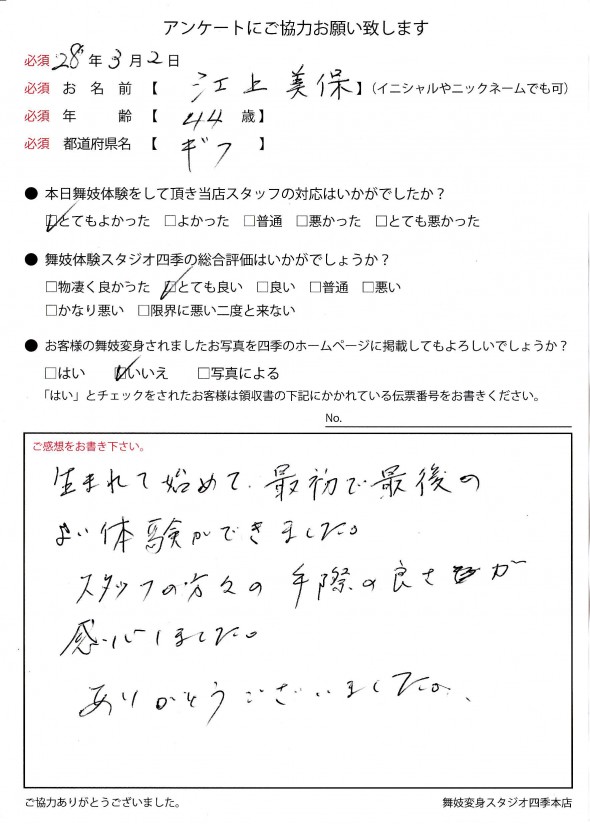 アンケートにご協力お願い致します
必須 28年3月2日
必須 お名前【 江上美保 】（イニシャルやニックネームでも可）
必須 年齢【 44歳】
必須 都道府県名【 ギフ 】
● 本日舞妓体験をして頂き当店スタッフの対応はいかがでしたか？
☑とてもよかった □よかった □普通 □悪かった □とても悪かった
● 舞妓体験スタジオ四季の総合評価はいかがでしょうか？
□物凄く良かった ☑とても良い □良い □普通 □悪い
□かなり悪い □限界に悪い二度と来ない
● お客様の舞妓変身されましたお写真を四季のホームページに掲載してもよろしいでしょうか？
□はい ☑いいえ □写真による
「はい」とチェックをされたお客様は領収書の下記にかかれている伝票番号をお書きください。
No.
ご感想をお書き下さい。
生まれて始めて、最初で最後の
よい体験ができました。
スタッフの方々の手際の良さが
感心しました。
ありがとうございました。
ご協力ありがとうございました。
舞妓変身スタジオ四季本店